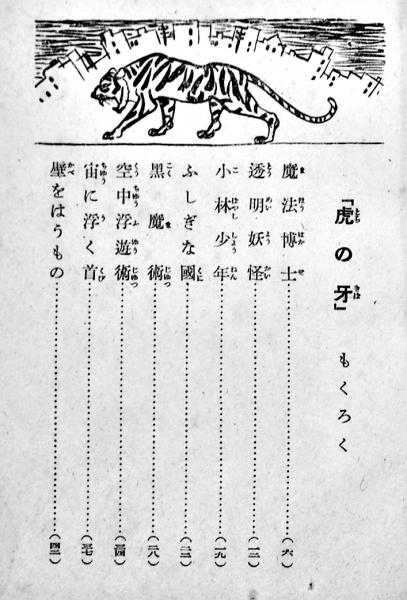 「虎の牙」 もくろく
魔法博士……(六)
透明妖怪……(一二)
小林少年……(一九)
ふしぎな國……(二二)
黑魔術……(二八)
空中浮遊術……(三四)
宙に浮く首……(三七)
壁をはうもの……(四二)